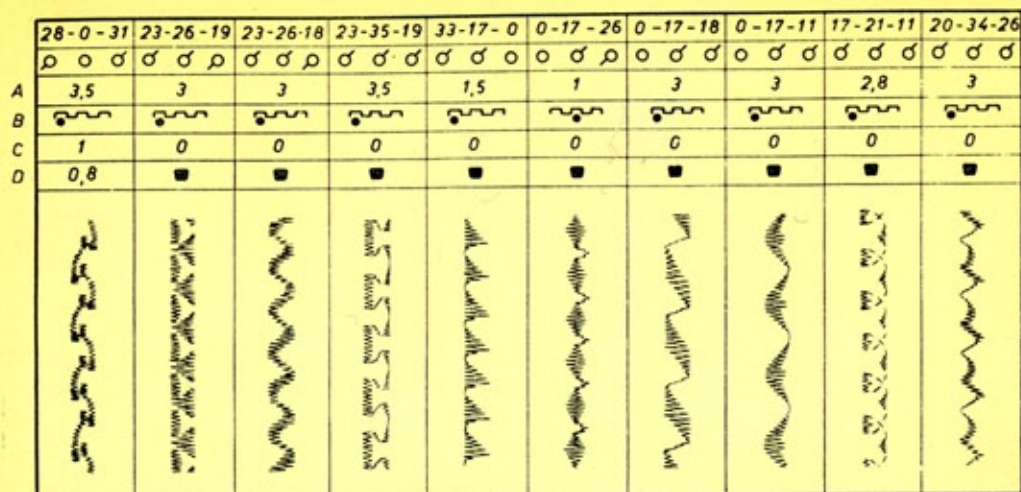 28-0-31 23-26-19 23-26-18 23-35-19 33-17-0 0-17-26 0-17-18 0-17-11 17-21-11 20-34-26
A 3,5 3 3 3,5 1,5 1 3 3 2,8 3
B
C 1 0 0 0 0 0 0 0 0 0
D 0,8